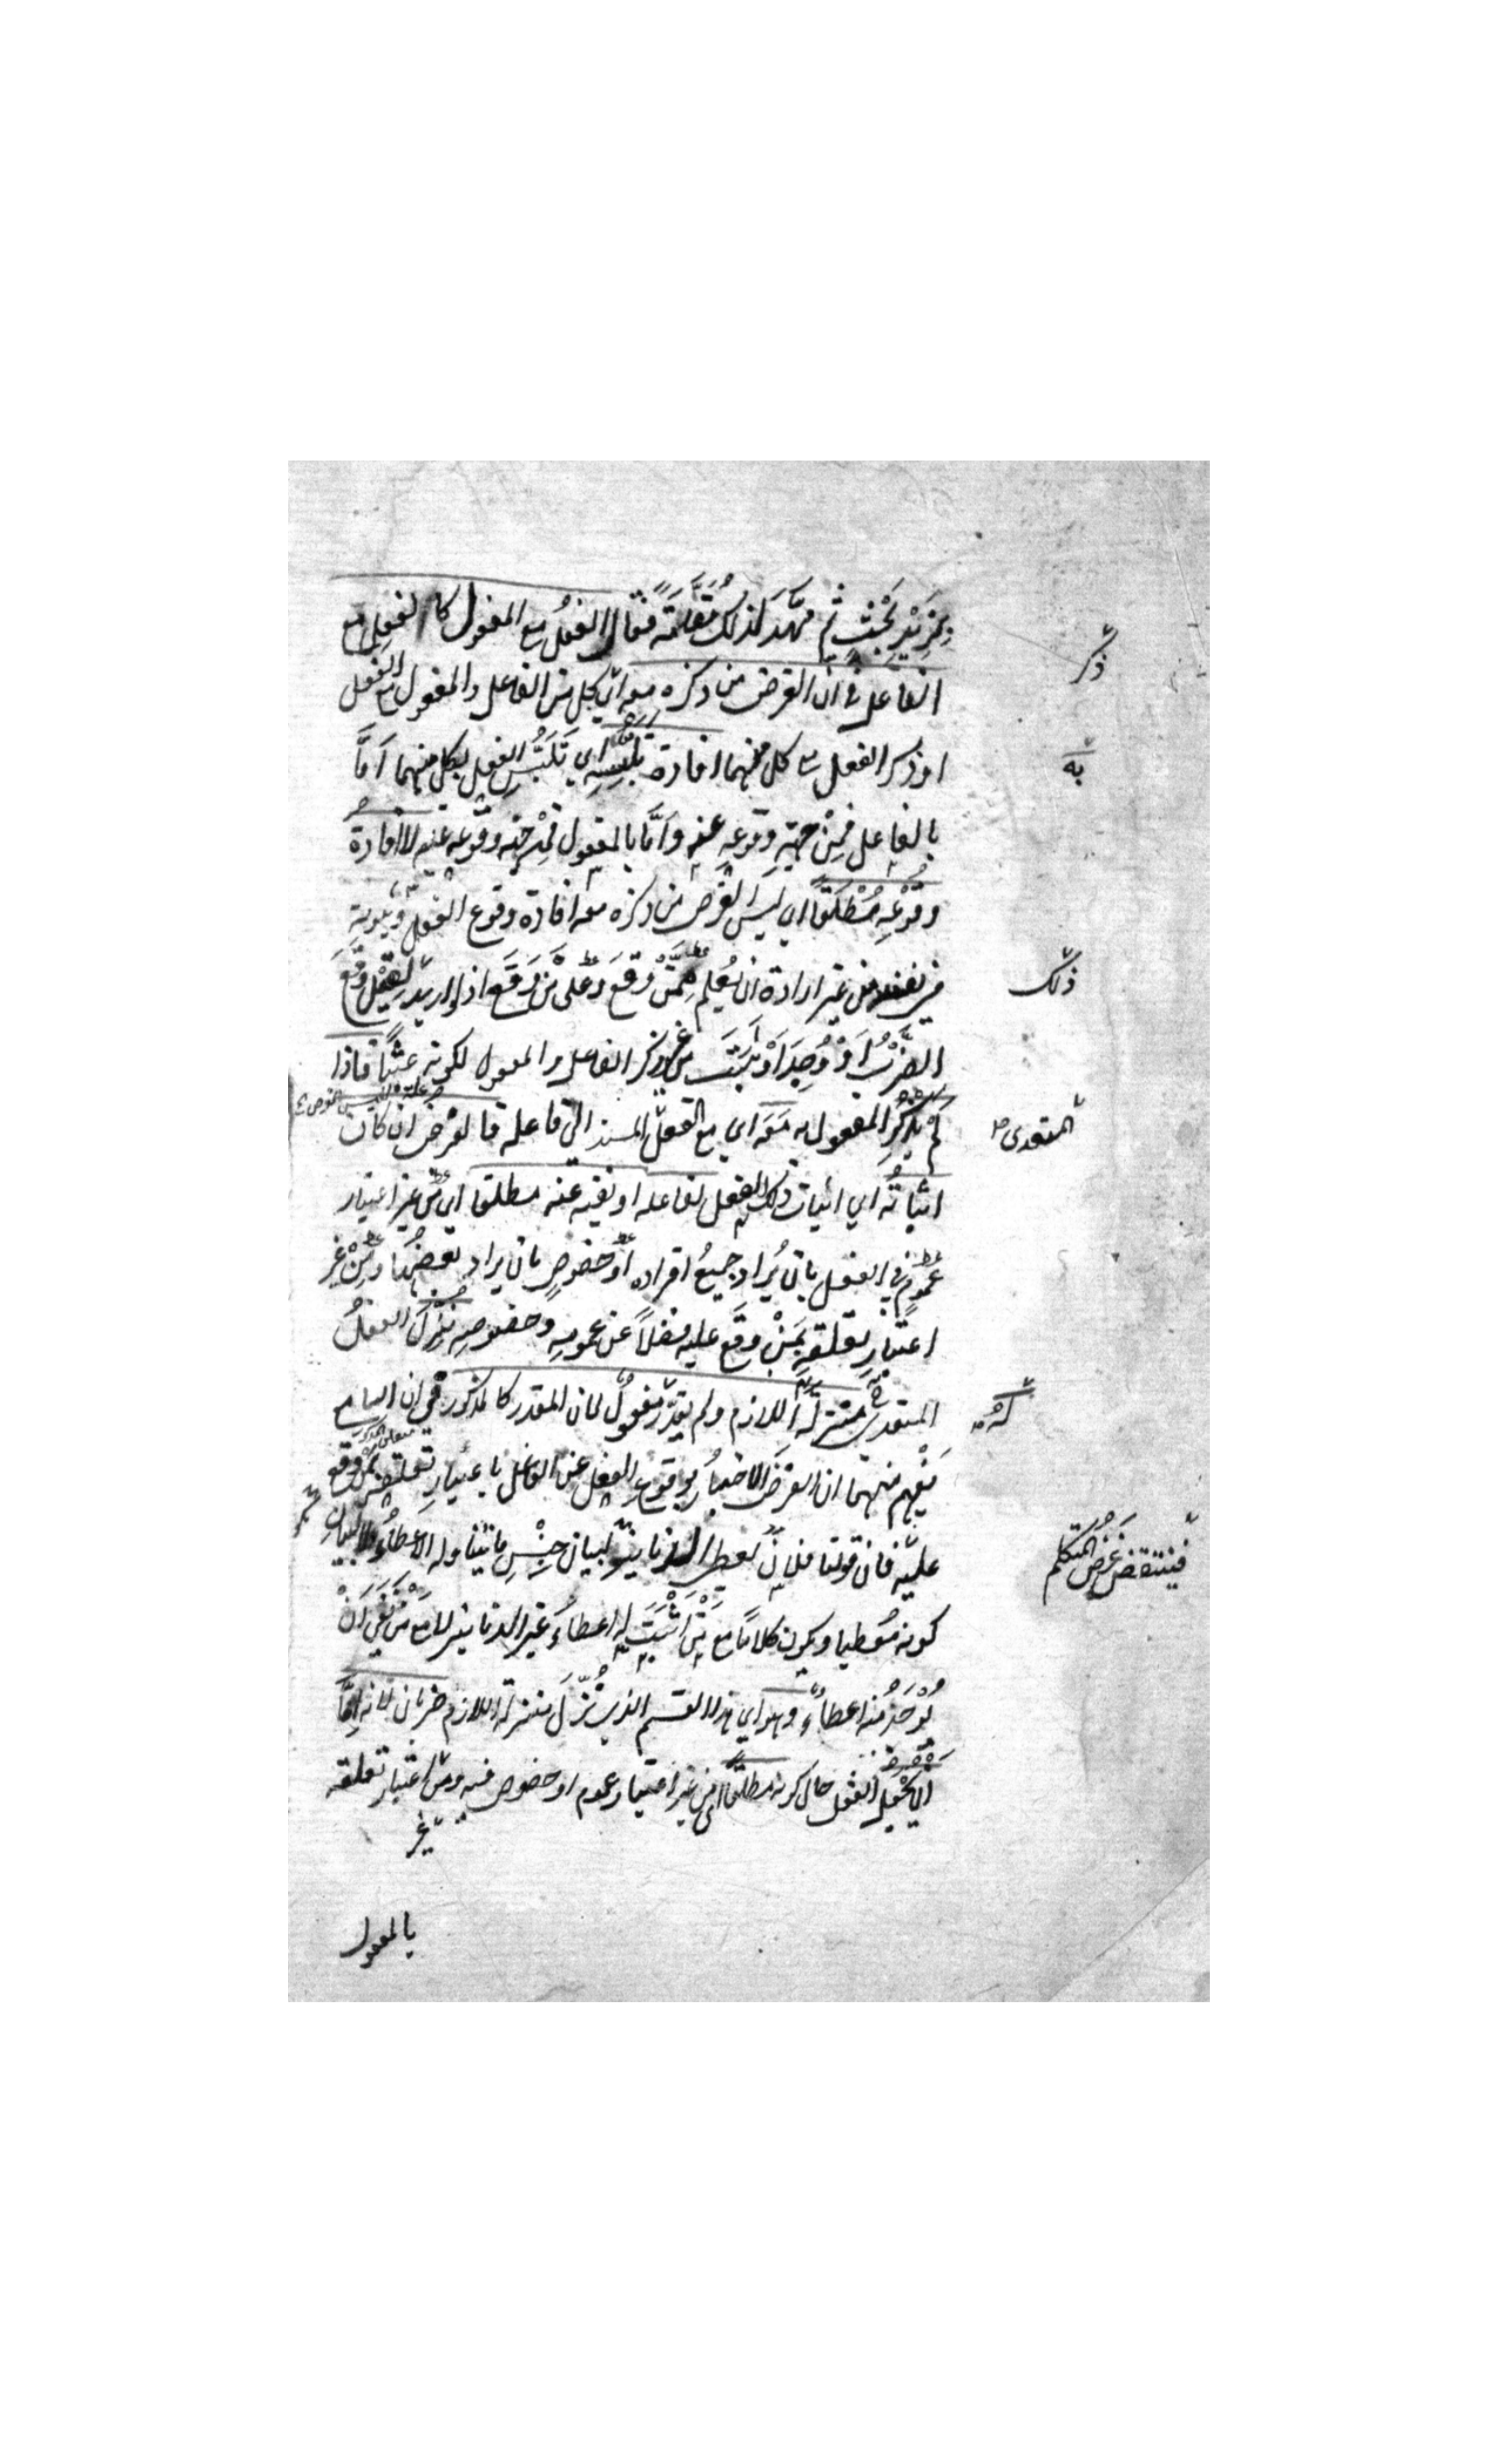 بِمَزِيْدِ بَحْثٍ ثم مَهَّدَ لذلك مُقَدَّمَةً فقال الفِعْلُ مع المفعول كالفعل مع
الفاعل في أن الغرض من ذكره معه اي كل من الفاعل والمفعول مع الفعل
او ذكر الفعل مع كل منهما افادة تلبسه اي تَلَبُّسِ الفعل بكل منهما اَمّا
بالفاعل فمِنْ جهةِ وقوعِهِ عنه واَمّا بالمفعول فمِنْ جهة وقوعه عليه لا افادة
وقوعِهِ مُطْلَقًا اي ليس الغرض من ذكره معه افادة وقوع الفعل وثبوتِهِ
في نفسه من غير ارادة ان يُعلم مِمَّنْ وَقَعَ وعلى مَنْ وَقَعَ اذ لو اريد لقيل وَقَعَ
الضَّرْبُ اَوْ وُجِدَ اَوْ ثَبَتَ من غير ذكر الفاعل والمفعول لكونه عَبَثًا فاذا
لَمْ يُذْكَرِ المفعول به مَعَه اي مع الفعل المسند الى فاعله فالغرض ان كان
اثباتُه اي اثبات ذلك الفعل لفاعله او نفيه عنه مطلقا اي من غير اعتبار
عمومٍ في الفعل بان يُراد جميعُ افراده اَوْ خصوصٍ بان يراد بعضُها ومِنْ غير
اعتبارِ تعلقهِ بِمَنْ وقَعَ عليه فضلاً عن عمومه وخصوصِهِ نُزِّلَ الفعلُ
المتعدى منزلةَ اللازم ولم يقدَّرْ مفعولٌ لان المقدر كالمذكور في ان السامع
يَفهم منهما ان الغرضَ الاخبارُ بوقوع الفعل عن الفاعل باعتبارِ تعلقه بمن وقع
عليه فان قولنا فلان يعطى الدنانير لبيان جِنْسِ ما يتناوله الاعطاءُ لا لبيان
كونه مُعطيا ويكون كلامًا مع مَنْ اَثْبَتَ له اعطاءً غيرَ الدنانير لا مَعَ مَنْ نَفَى اَنْ
يُوْجَدَ منه اعطاءٌ وهو اي هذا القسم الذي نُزِّلَ منزلة اللازم ضربان لانه اِمّا
ان يُجْعَلَ الفعل حال كونه مطلقًا اي من غير اعتبار عموم او خصوص فيه ومن غير اعتبار تعلقه
بالمفعول
ذكر
به
ذلك
المتعدى
له
فينتقض غرض المتكلم